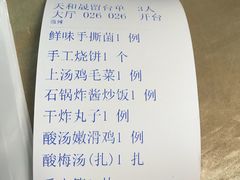 天和晟留台单 3人
大厅 026 026 开台
鲜味手撕菌1 例
手工烧饼1 个
上汤鸡毛菜1 例
石锅炸酱炒饭1 例
干炸丸子1 例
酸汤嫩滑鸡1 例
酸梅汤(扎)1 扎